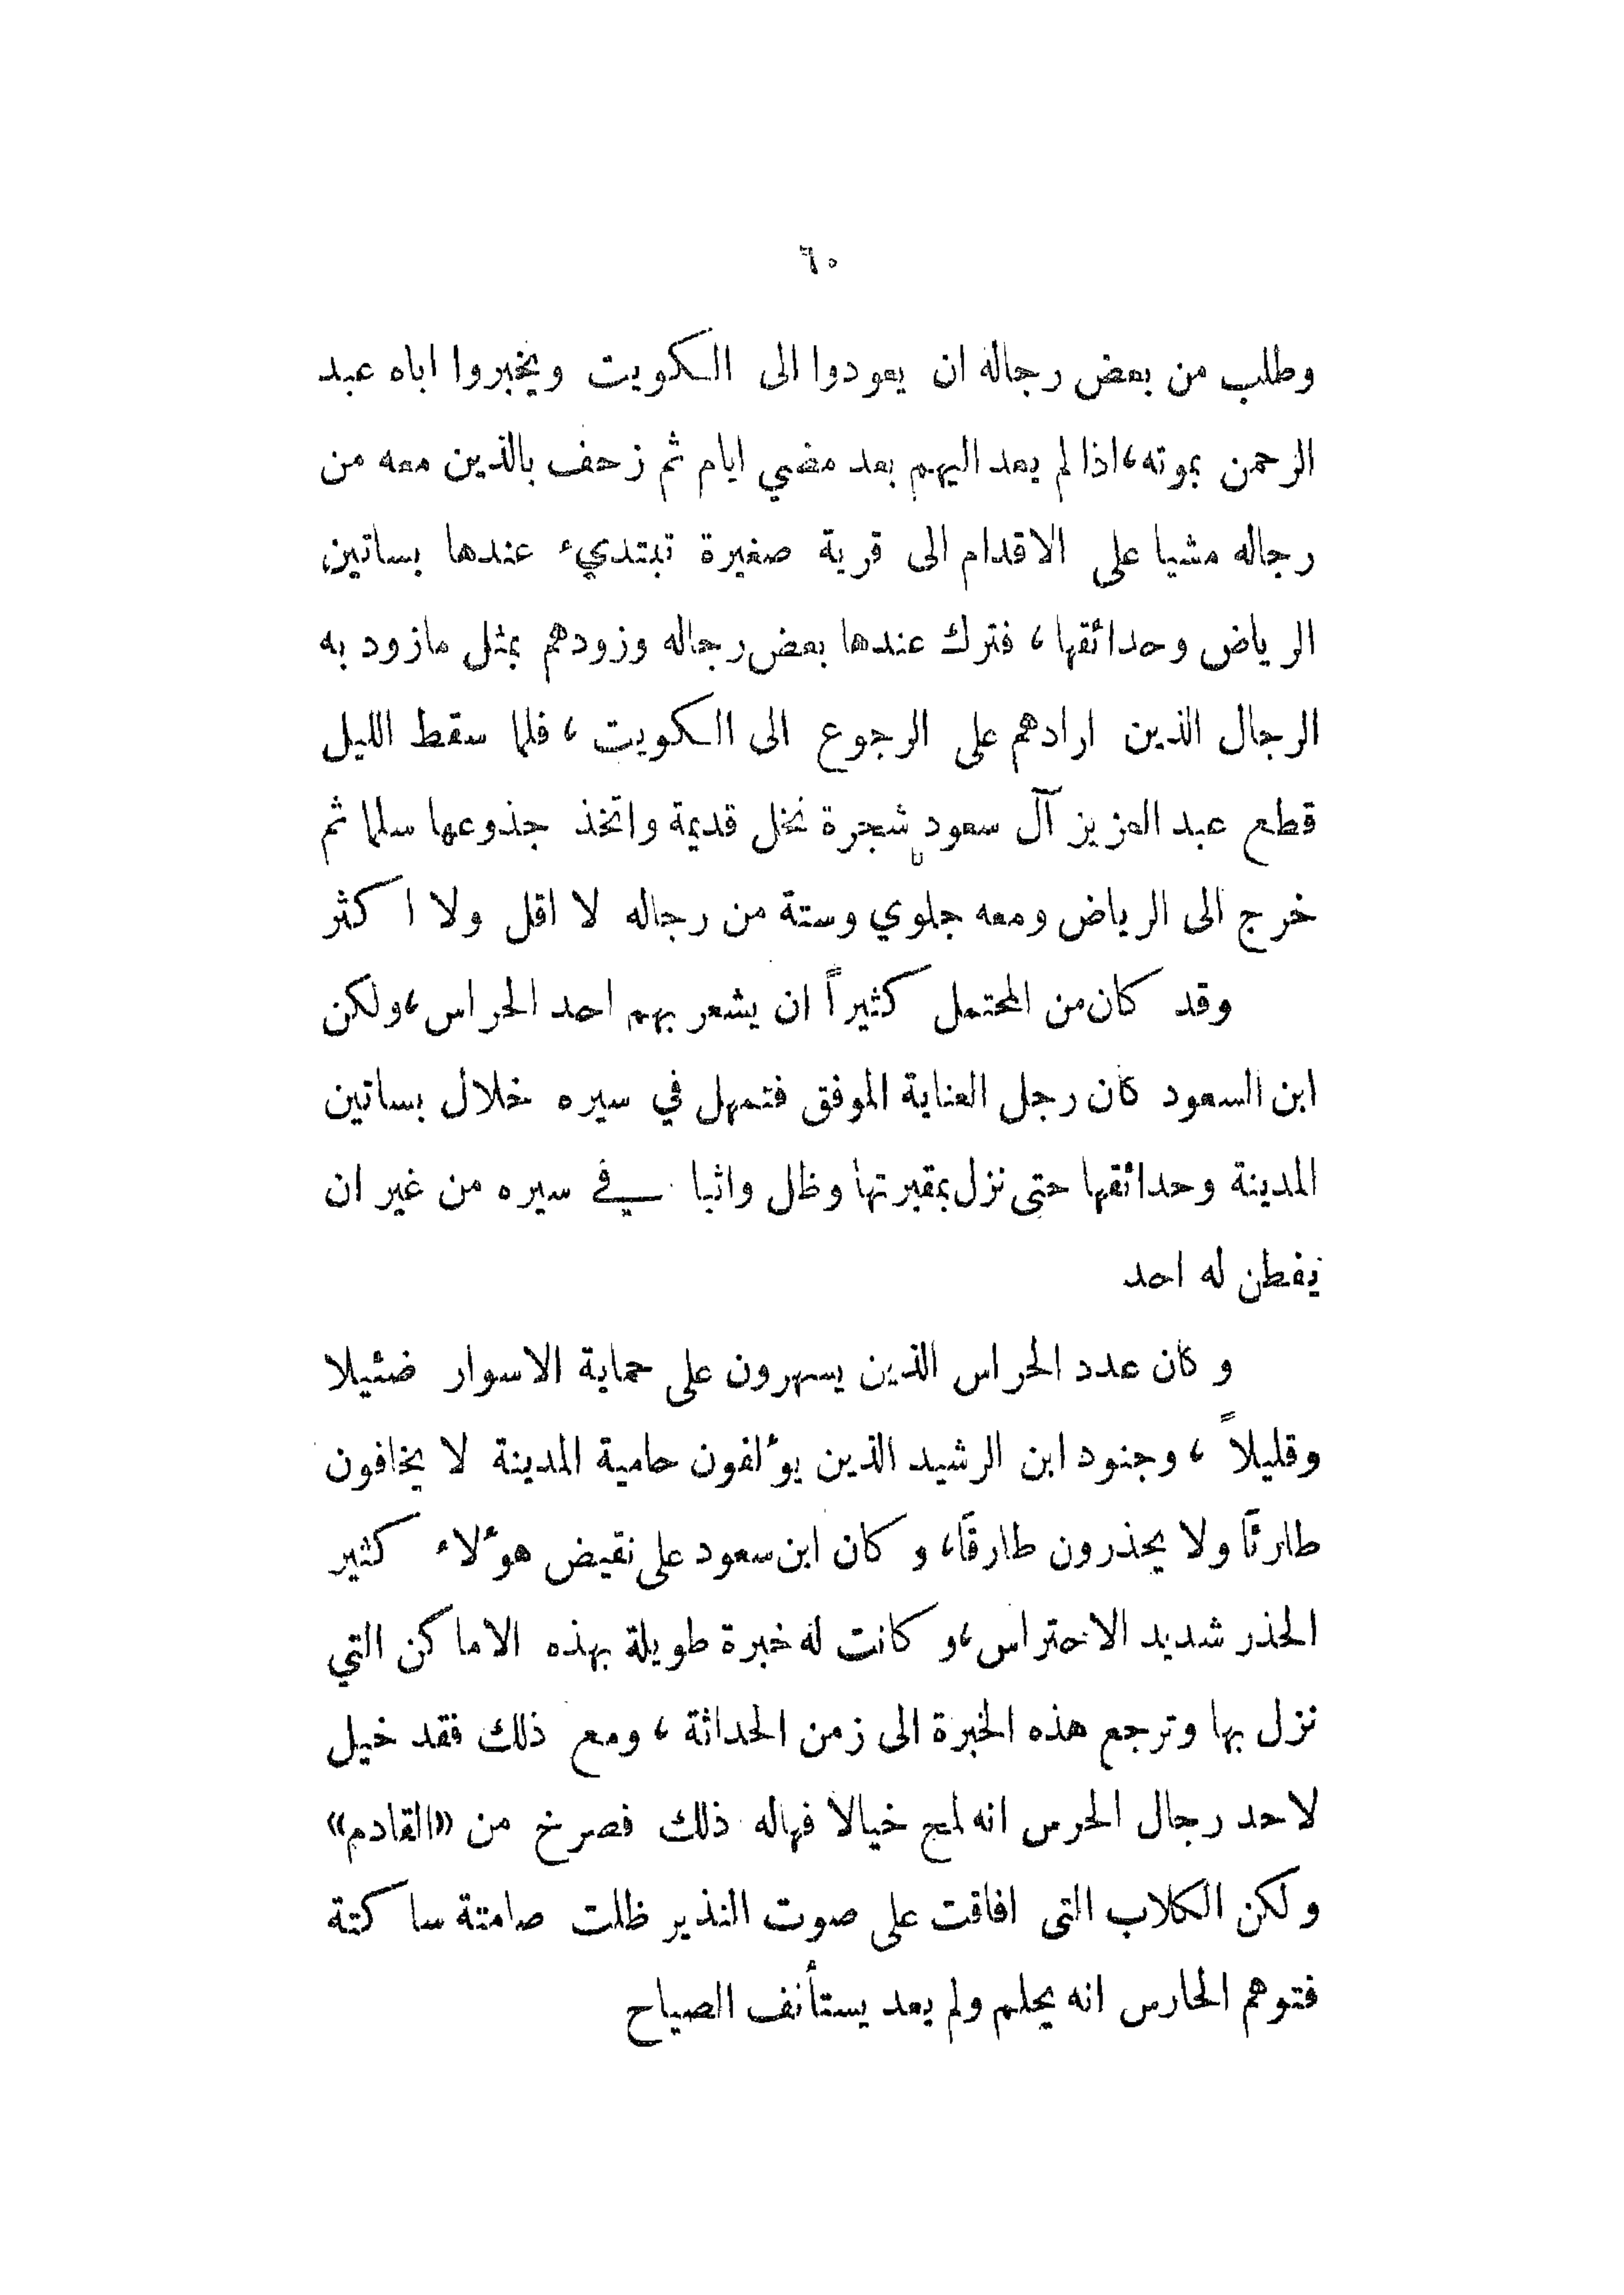 ٦٠
وطلب من بعض رجاله ان يعودوا الى الكويت ويخبروا اباه عبد
الرحمن بموته، اذا لم يعد اليهم بعد مضي ايام ثم زحف بالذين معه من
رجاله مشيا على الاقدام الى قرية صغيرة تبتديء عندها بساتين
الرياض وحدائقها، فترك عندها بعض رجاله وزودهم بمثل مازود به
الرجال الذين ارادهم على الرجوع الى الكويت، فلما سقط الليل
قطع عبد العزيز آل سعود شجرة نخل قديمة واتخذ جذوعها سلما ثم
خرج الى الرياض ومعه جلوي وستة من رجاله لا اقل ولا اكثر
وقد كان من المحتمل كثيراً ان يشعر بهم احد الحراس، ولكن
ابن السعود كان رجل العناية الموفق فتمهل في سيره خلال بساتين
المدينة وحدائقها حتى نزل بمقبرتها وظل واثبا في سيره من غير ان
يفطن له احد
وكان عدد الحراس الذين يسهرون على حماية الاسوار ضئيلا
وقليلاً، وجنود ابن الرشيد الذين يؤلفون حامية المدينة لا يخافون
طارئًا ولا يحذرون طارقًا، وكان ابن سعود على نقيض هؤلاء كثير
الحذر شديد الاحتراس، وكانت له خبرة طويلة بهذه الاماكن التي
نزل بها وترجع هذه الخبرة الى زمن الحداثة، ومع ذلك فقد خيل
لاحد رجال الحرس انه لمح خيالا فهاله ذلك فصرخ من «القادم»
ولكن الكلاب التى افاقت على صوت النذير ظلت صامتة ساكتة
فتوهم الحارس انه يحلم ولم يعد يستأنف الصياح